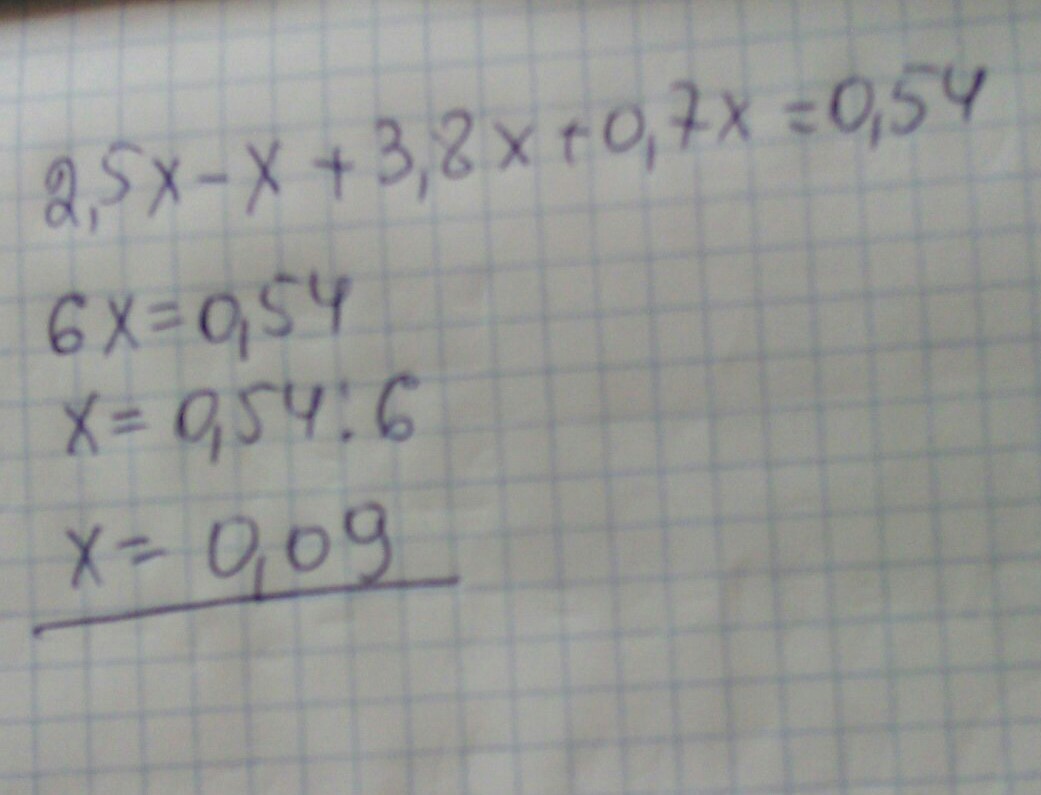 2,5x-x+3,8x+0,7x=0,54
6x=0,54
x=0,54:6
x=0,09